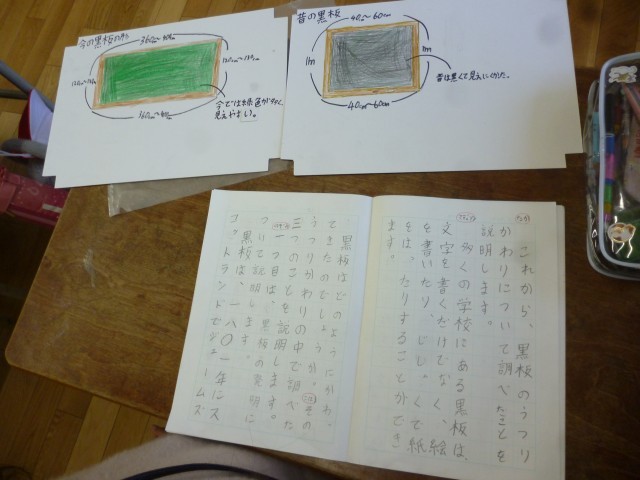 今の黒板
360cm〜
今では緑色が多く
見えやすい。
昔の黒板
40cm〜60cm
1m
1m
昔は黒くて見えにくかった。
40cm〜60cm
これから、黒板のうつり
かわりについて調べたことを
説明します。
多くの学校にある黒板は、
文字を書くだけでなく、絵
を書いたり、じしゃくで紙
をはったりすることができ
ます。
黒板はどのようにかわっ
てきたのでしょうか。その
うつりかわりの中で調べた
三つのことを説明します。
一つ目は、黒板の発明に
ついて説明します。
黒板は、一八〇一年にス
コットランドでジェームズ